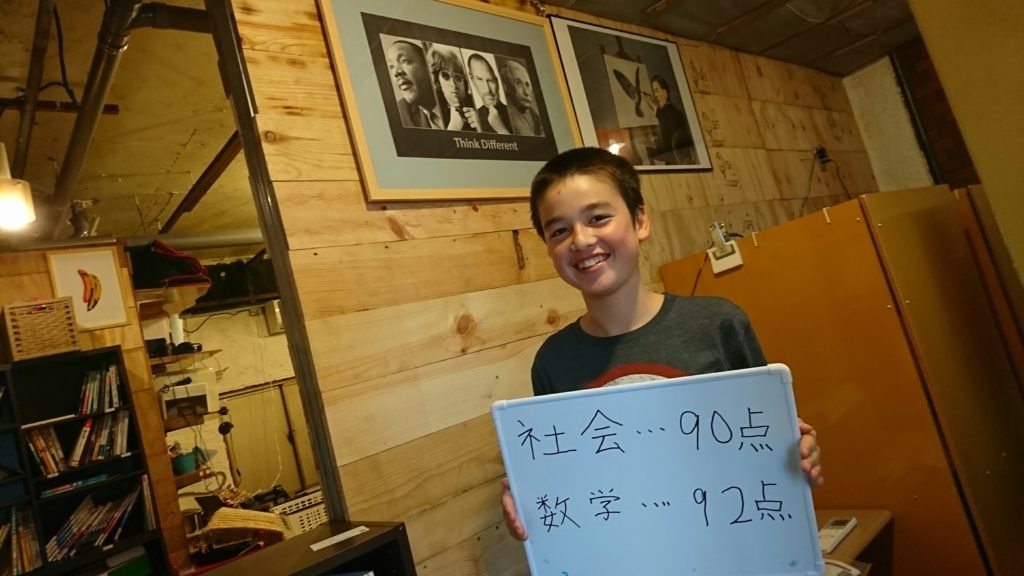 Think Different
社会…90点
数学….92点